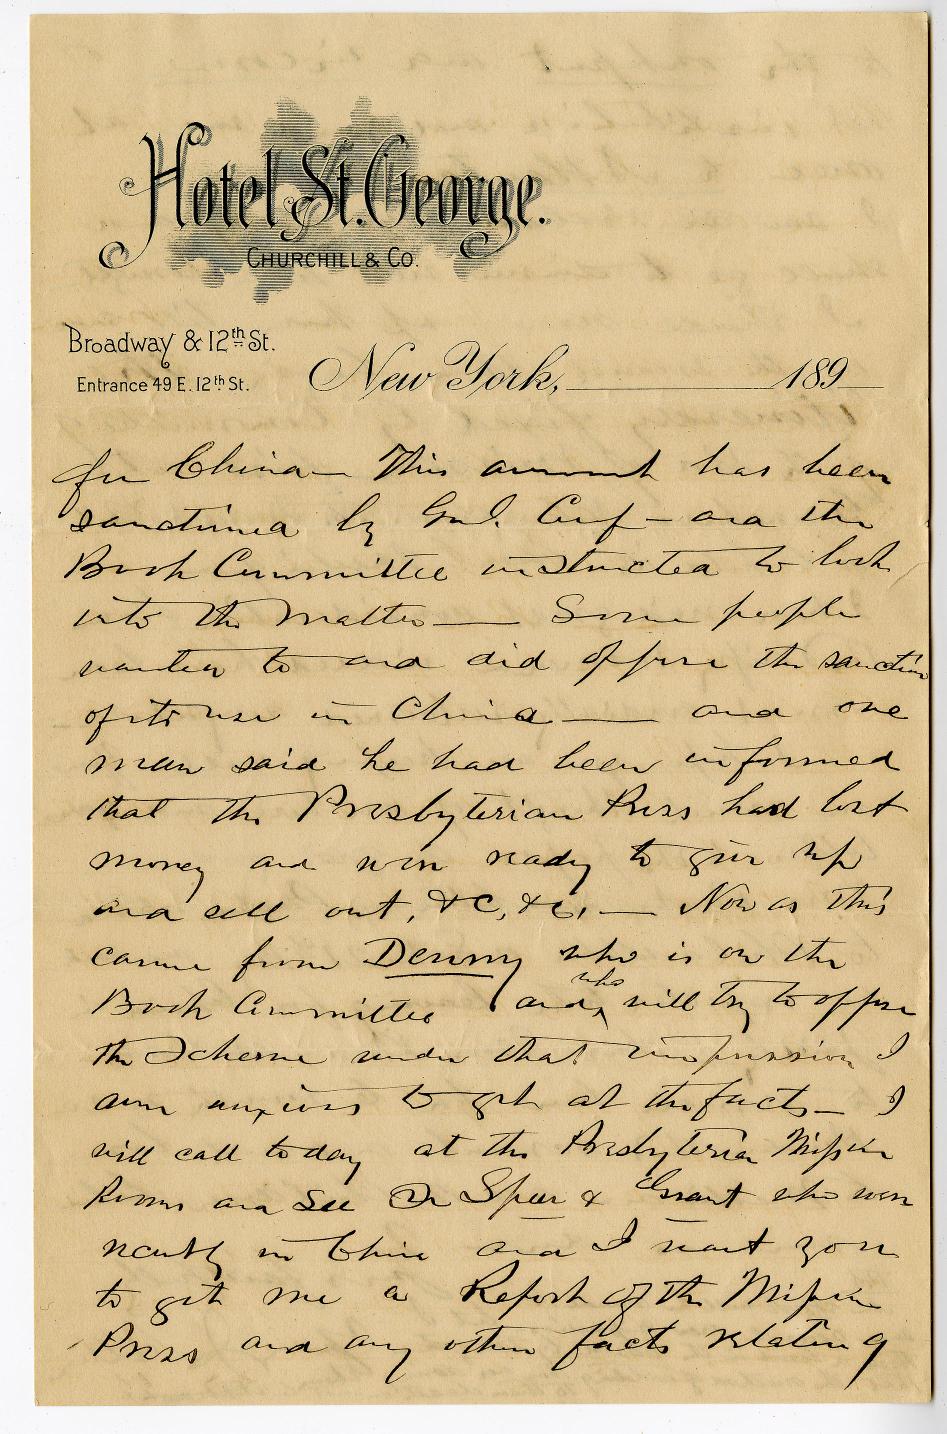 Hotel St. George.
CHURCHILL & CO.
Broadway & 12th St.
Entrance 49 E. 12th St.
New York, 189
for China — This amount has been
sanctioned by Genl. Conf — and the
Book Committee instructed to look
into the matter — Some people
wanted to and did oppose the sanction
of its use in China — and one
man said he had been informed
that the Presbyterian Press had lost
money and were ready to give up
and sell out, &c, &c, — Now as this
came from Denny who is on the
Book Committee and who will try to oppose
the Scheme under that impression I
am anxious to get at the facts — I
will call today at the Presbyterian Mission
Rooms and See Dr Speer & Grant who were
recently in China and I want you
to get me a Report of the Mission
Press and any other facts relating